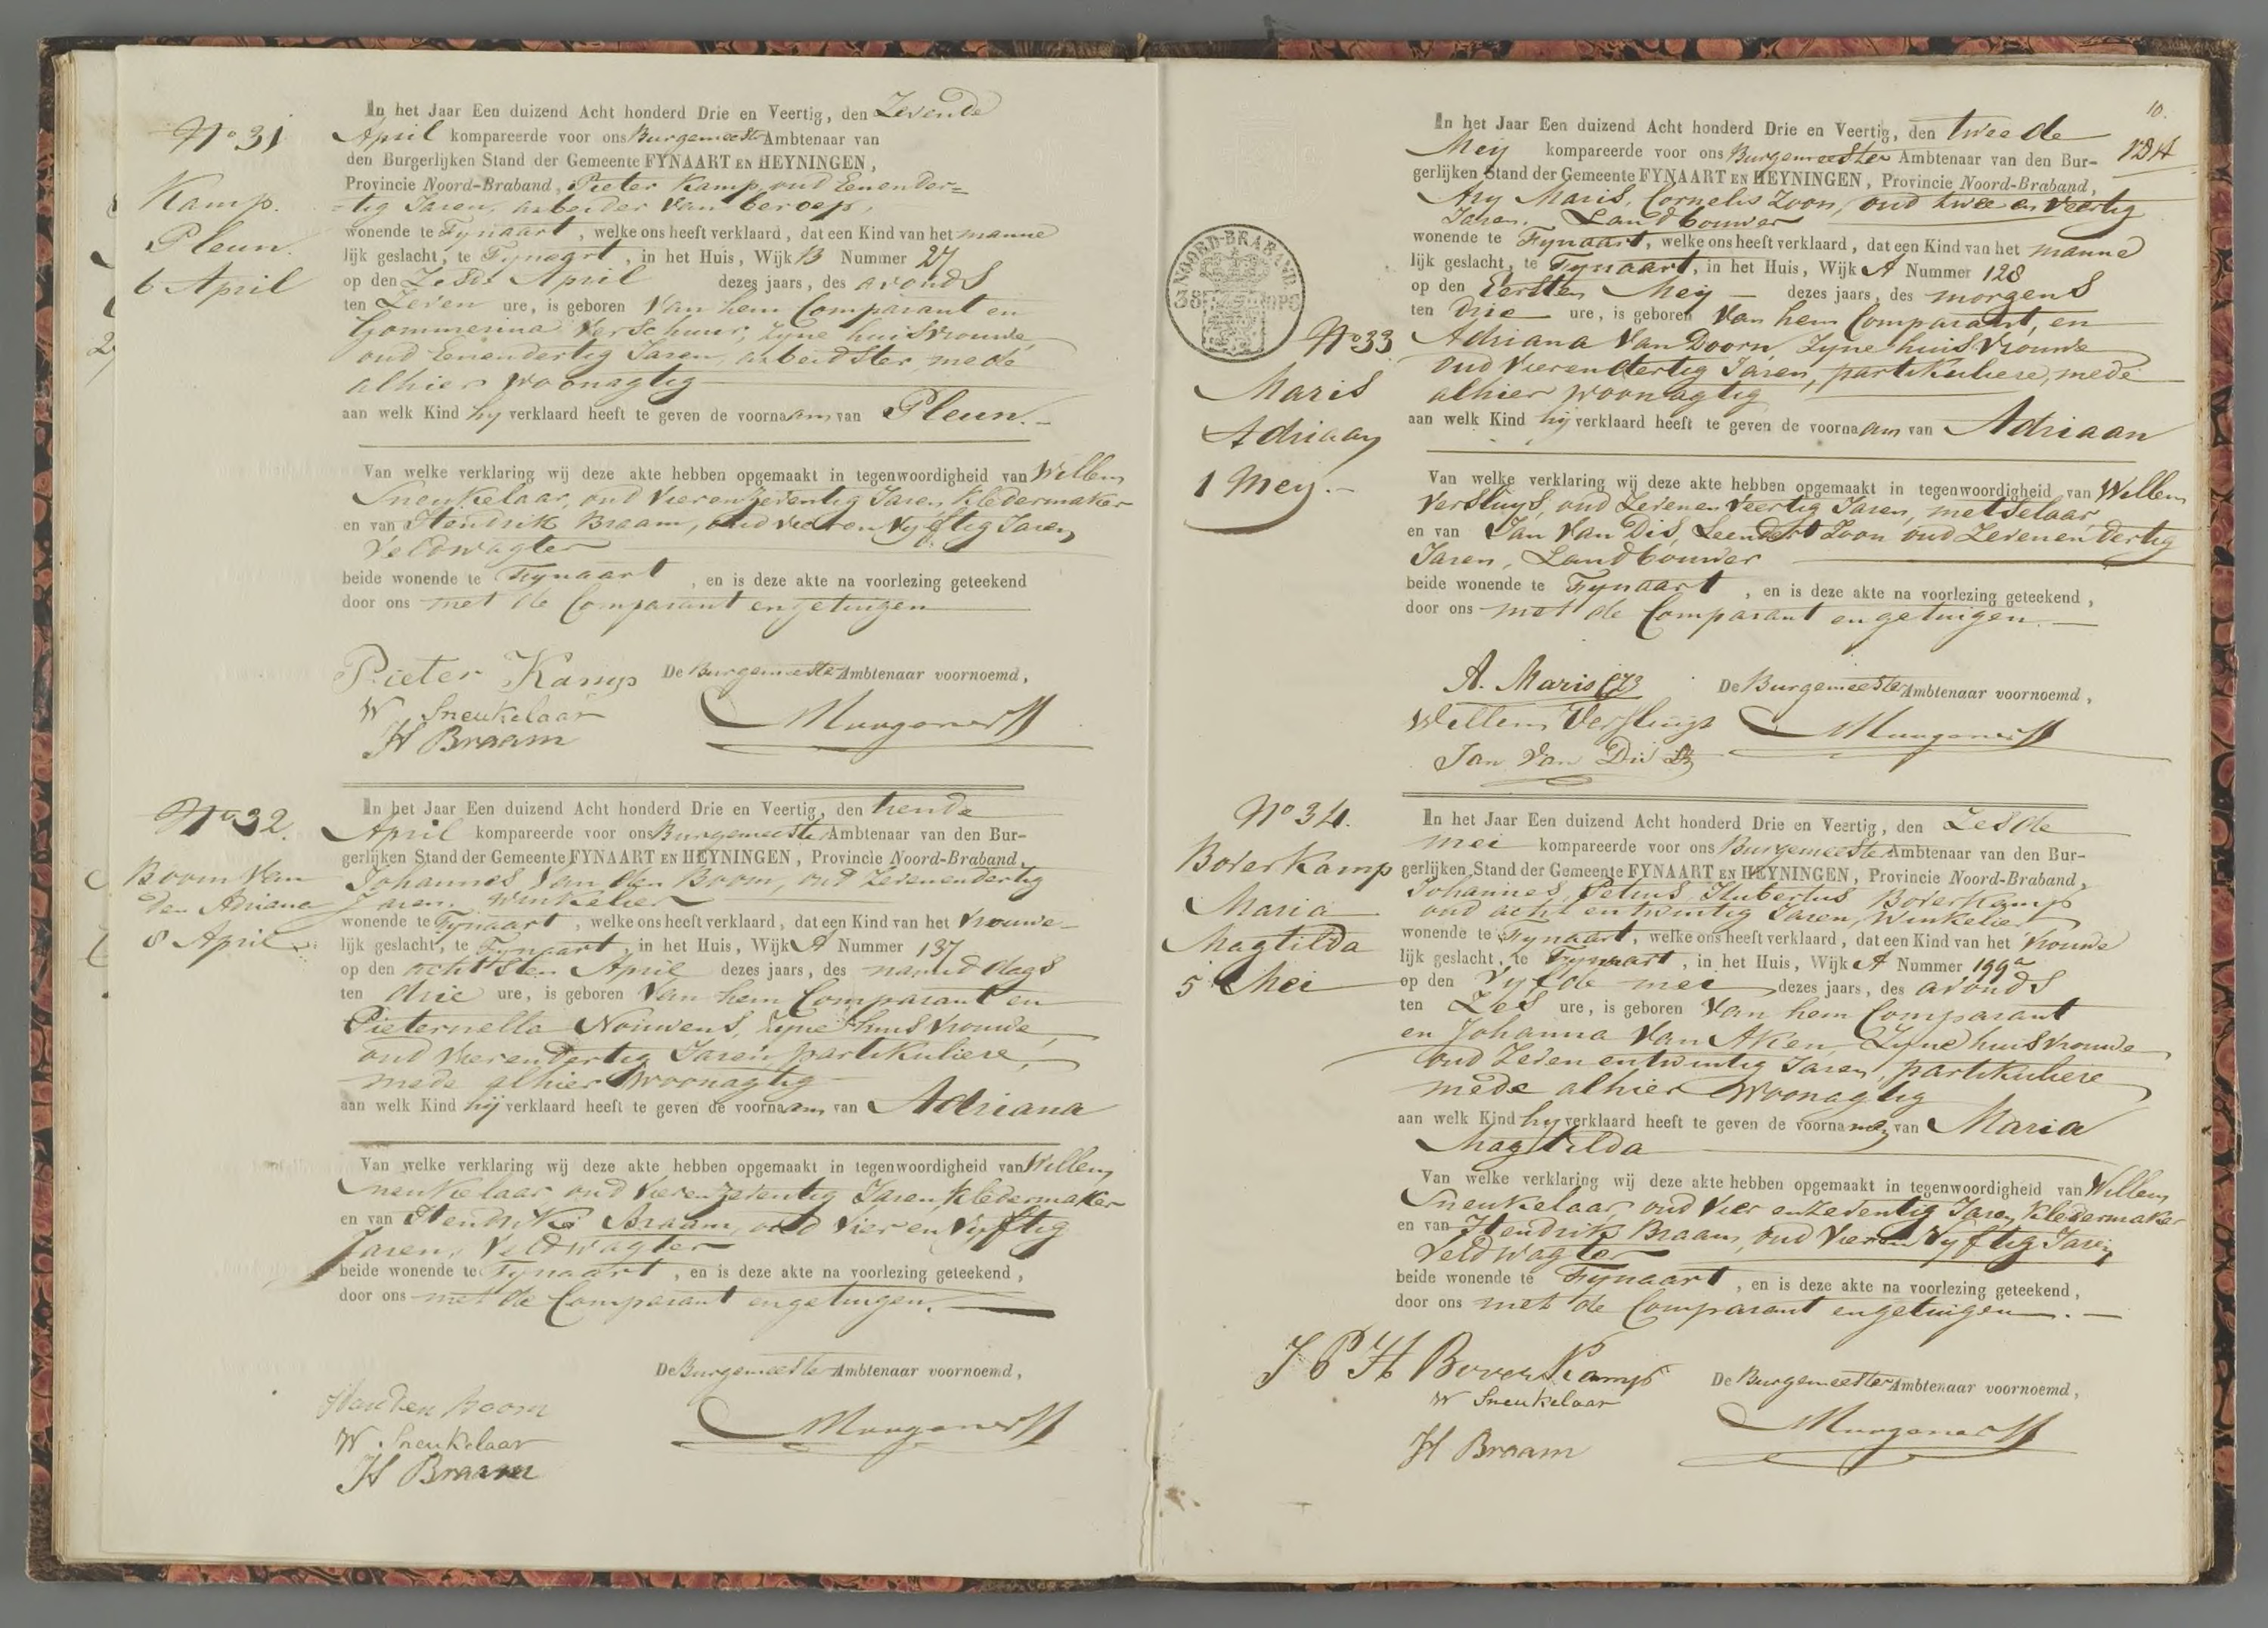 No 31
Kamp.
Pleun.
6 April
In het Jaar Een duizend Acht honderd Drie en Veertig, den Zevende
April kompareerde voor ons Burgemeester Ambtenaar van
den Burgerlijken Stand der Gemeente FYNAART EN HEYNINGEN,
Provincie Noord-Braband, Pieter Kamp oud Eenender=
=tig Jaren, arbeider van beroep,
wonende te Fynaart, welke ons heeft verklaard, dat een Kind van het manne
lijk geslacht, te Fynaart, in het Huis, Wijk B Nummer 27
op den Zesde April dezes jaars, des avonds
ten Zeven ure, is geboren van hem Comparant en
Gommerina Verschuur, zyne huisvrouwe,
oud Eenendertig Jaren, arbeidster, mede
alhier woonagtig
aan welk Kind hy verklaard heeft te geven de voornaam van Pleun.-
Van welke verklaring wij deze akte hebben opgemaakt in tegenwoordigheid van Willem
Sneukelaar, oud vierenzeventig Jaren, kledermaker
en van Hendrik Braam, oud vier en vyftig Jaren
veldwagter
beide wonende te Fynaart, en is deze akte na voorlezing geteekend
door ons met de Comparant en getuigen
Pieter Kamp
W Sneukelaar
H Braam
De Burgemeester Ambtenaar voornoemd,
No 32.
Boom van
den Adriana
8 April.
In het Jaar Een duizend Acht honderd Drie en Veertig, den tiende
April kompareerde voor ons Burgemeester Ambtenaar van den Bur-
gerlijken Stand der Gemeente FYNAART EN HEYNINGEN, Provincie Noord-Braband,
Johannes van den Boom, oud Zevenendertig
Jaren, Winkelier
wonende te Fynaart, welke ons heeft verklaard, dat een Kind van het vrouwe-
lijk geslacht, te Fynaart, in het Huis, Wijk A Nummer 137
op den achtsten April dezes jaars, des namiddags
ten drie ure, is geboren van hem Comparant en
Pieternella Nouwens, zyne huisvrouwe,
oud vierendertig Jaren, partikuliere,
mede alhier woonagtig
aan welk Kind hij verklaard heeft te geven de voornaam van Adriana
Van welke verklaring wij deze akte hebben opgemaakt in tegenwoordigheid van Willem
Sneukelaar, oud vierenzeventig Jaren, kledermaker
en van Hendrik Braam, oud vier en vyftig
Jaren, veldwagter
beide wonende te Fynaart, en is deze akte na voorlezing geteekend,
door ons met de Comparant en getuigen.
De Burgemeester Ambtenaar voornoemd,
van den Boom
W Sneukelaar
H Braam
10.
NOORD-BRABAND
No 33
Maris
Adriaan
1 Mey.-
In het Jaar Een duizend Acht honderd Drie en Veertig, den tweede
Mey kompareerde voor ons Burgemeester Ambtenaar van den Bur-
gerlijken Stand der Gemeente FYNAART EN HEYNINGEN, Provincie Noord-Braband,
Ary Maris, Cornelis Zoon, oud twee en veertig
Jaren, Landbouwer
wonende te Fynaart, welke ons heeft verklaard, dat een Kind van het manne
lijk geslacht, te Fynaart, in het Huis, Wijk A Nummer 128
op den Eersten Mey dezes jaars, des morgens
ten drie ure, is geboren van hem Comparant, en
Adriana van Doorn, zyne huisvrouwe
oud vierendertig Jaren, partikuliere, mede
alhier woonagtig
aan welk Kind hij verklaard heeft te geven de voornaam van Adriaan
Van welke verklaring wij deze akte hebben opgemaakt in tegenwoordigheid van Willem
Versluys, oud Zevenenveertig Jaren, metselaar
en van Jan van Dis, Leendert Zoon oud Zevenendertig
Jaren, Landbouwer
beide wonende te Fynaart, en is deze akte na voorlezing geteekend,
door ons met de Comparant en getuigen.-
A. Maris Cz
Willem Versluys
Jan van Dis Lz
De Burgemeester Ambtenaar voornoemd,
No 34.
Boverkamp
Maria
Magtilda
5 Mei
In het Jaar Een duizend Acht honderd Drie en Veertig, den Zesde
mei kompareerde voor ons Burgemeester Ambtenaar van den Bur-
gerlijken Stand der Gemeente FYNAART EN HEYNINGEN, Provincie Noord-Braband,
Johannes Petrus Hubertus Boverkamp
oud acht en twintig Jaren, Winkelier
wonende te Fynaart, welke ons heeft verklaard, dat een Kind van het vrouwe
lijk geslacht, te Fynaart, in het Huis, Wijk A Nummer 199a
op den vyfde mei dezes jaars, des avonds
ten Zes ure, is geboren van hem Comparant
en Johanna van Aken, Zyne huisvrouwe
oud Zeven en twintig Jaren, partikuliere
mede alhier woonagtig
aan welk Kind hy verklaard heeft te geven de voornamen van Maria
Magtilda
Van welke verklaring wij deze akte hebben opgemaakt in tegenwoordigheid van Willem
Sneukelaar, oud vier enzeventig Jaren, kledermaker
en van Hendrik Braam, oud vier en vyftig Jaren
veldwagter
beide wonende te Fynaart, en is deze akte na voorlezing geteekend,
door ons met de Comparant en getuigen.-
J P H Boverkamp
W Sneukelaar
H Braam
De Burgemeester Ambtenaar voornoemd,